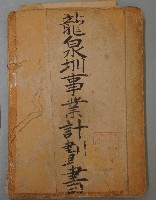 龍泉圳事業計畫書